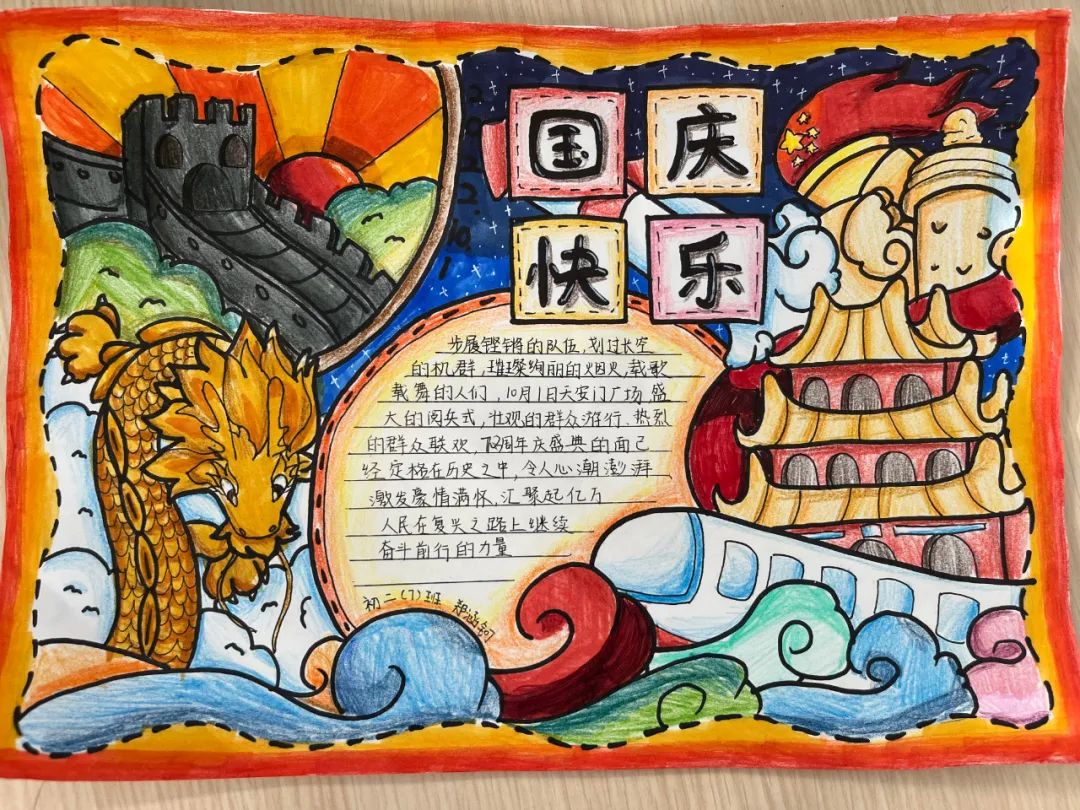 国庆
快乐
2022.10.1
步履铿锵的队伍,划过长空
的机群,璀璨绚丽的烟火,载歌
载舞的人们,10月1日天安门广场盛
大的阅兵式,壮观的群众游行、热烈
的群众联欢,72周年庆盛典的面已
经定格在历史之中,令人心潮澎湃
激发豪情满怀,汇聚起亿万
人民在复兴之路上继续
奋斗前行的力量
初二(7)班